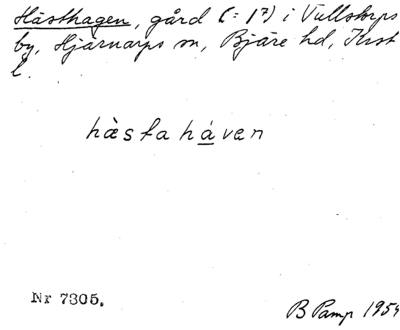 Hästhagen, gård (: 1⁷) i Vullstorps
by, Hjärnarps sn, Bjäre hd, Krst
l.
hàstahάvεn
Nr 7305.
B Pamp 1954